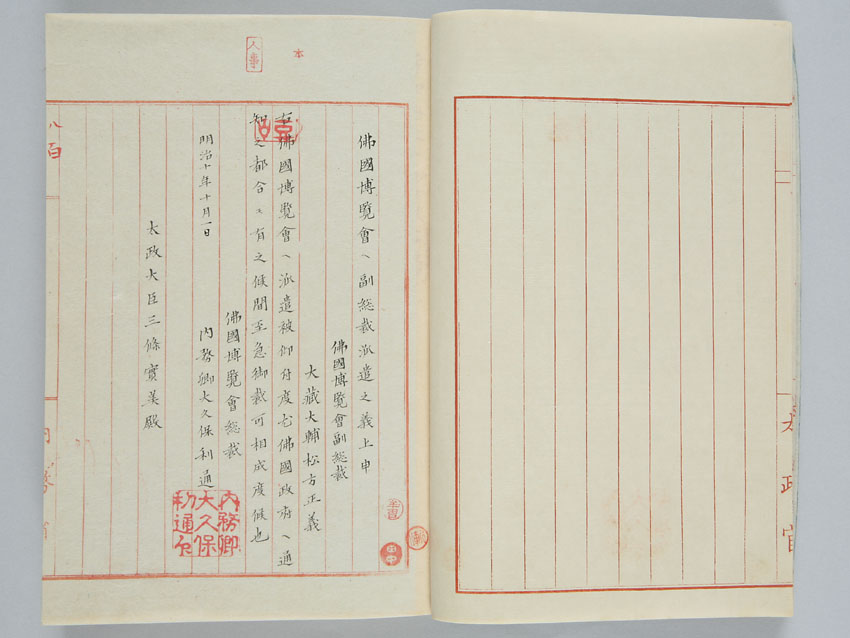 太政官
人事
本
佛國博覧會ヘ副総裁派遣之義上申
佛國博覧會副総裁
大藏大輔松方正義
右佛國博覧會ヘ派遣被仰付度尤佛國政府ヘ通
知之都合モ有之候間至急御裁可相成度候也
明治十年十月一日
佛國博覧會総裁
内務卿大久保利通
内務卿
大久保
利通印
太政大臣三條實美殿
内務省